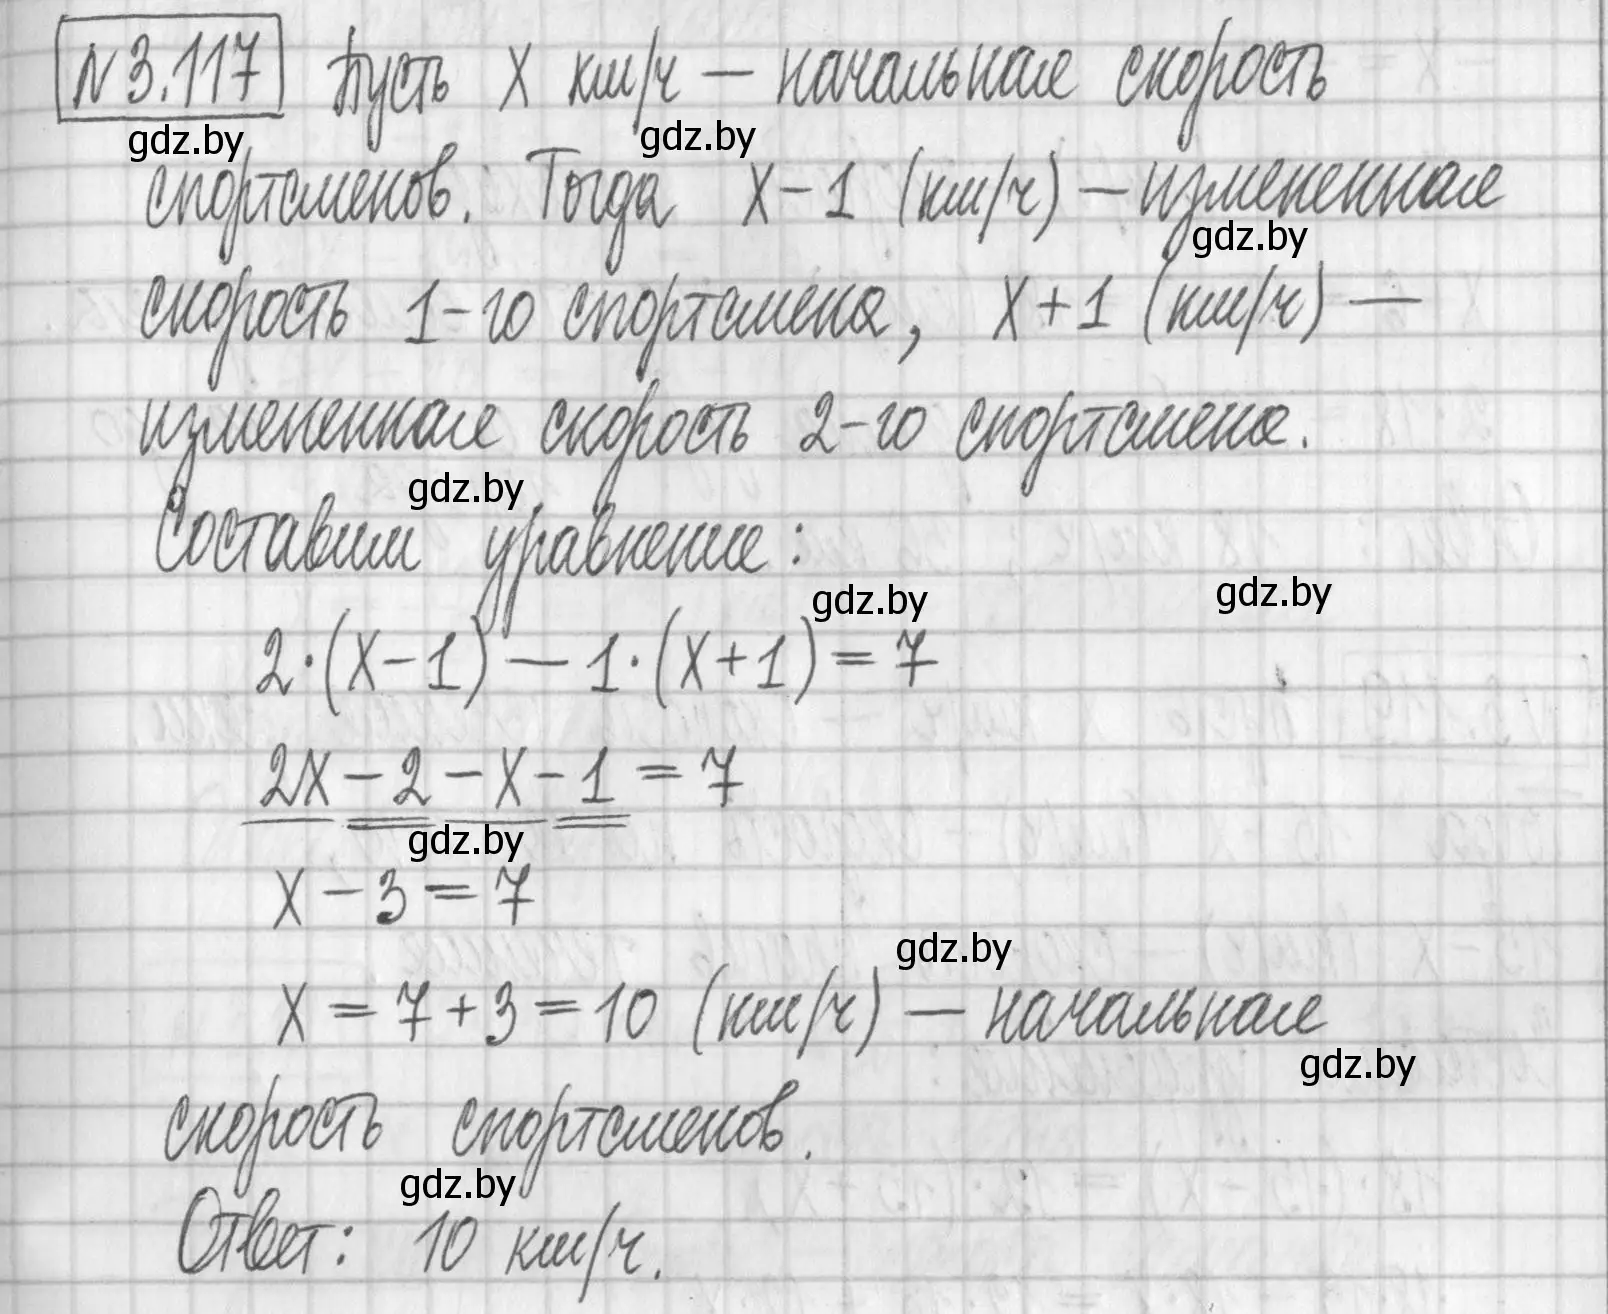 №3.117 Пусть x км/ч — начальная скорость
gdz.by gdz.by
спортсменов. Тогда x-1 (км/ч) — измененная
gdz.by
скорость 1-го спортсмена, x+1 (км/ч) —
измененная скорость 2-го спортсмена.
gdz.by
Составим уравнение:
gdz.by gdz.by
2·(x-1) — 1·(x+1) = 7
2x - 2 - x - 1 = 7
gdz.by
x - 3 = 7
gdz.by
x = 7 + 3 = 10 (км/ч) — начальная
gdz.by
скорость спортсменов.
gdz.by
Ответ: 10 км/ч.